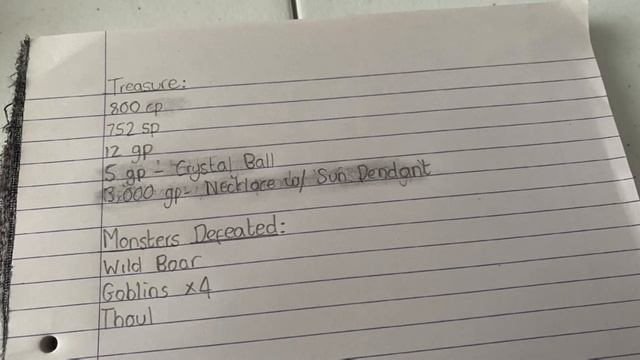 Treasure:
800 cp
752 sp
12 gp
5 gp - Crystal Ball
3,000 gp- Necklace w/ Sun Pendant
Monsters Defeated:
Wild Boar
Goblins x4
Thoul